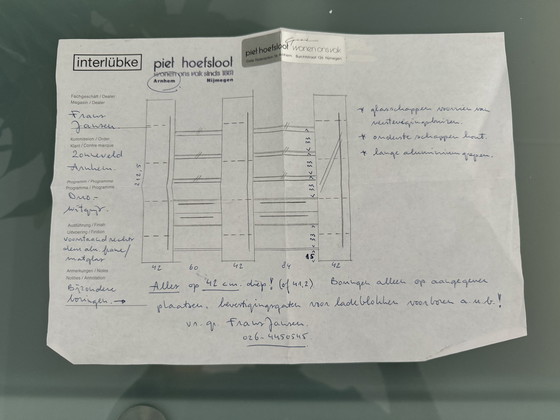 interlübke
piet hoefsloot
wonen ons vak sinds 1881
Arnhem Nijmegen
piet hoefsloot wonen ons vak
Fachgeschäft / Dealer
Magasin / Dealer
Frans
Jansen
Kommission / Order
Zonneveld
Arnhem.
Programm / Programme
Programme / Programma
Ausführung / Finish
Exécution / Finition
voorstaand rechts
matglas
Anmerkungen / Notes
Notices / Annotation
Bijzondere
boringen. →
* glasschappen voorzien van
bevestigingsbuizen.
* onderste schappen hout.
* lange aluminium grepen.
212,5
33
33
33
33
33
15
42 60 42 64 42
Alles op 42 cm. diep! (of 41,2) Boringen alleen op aangegeven
plaatsen, bevestigingsgaten voor ladeblokken voorboren a.u.b.!
vr. gr. Frans Jansen
026-4450545